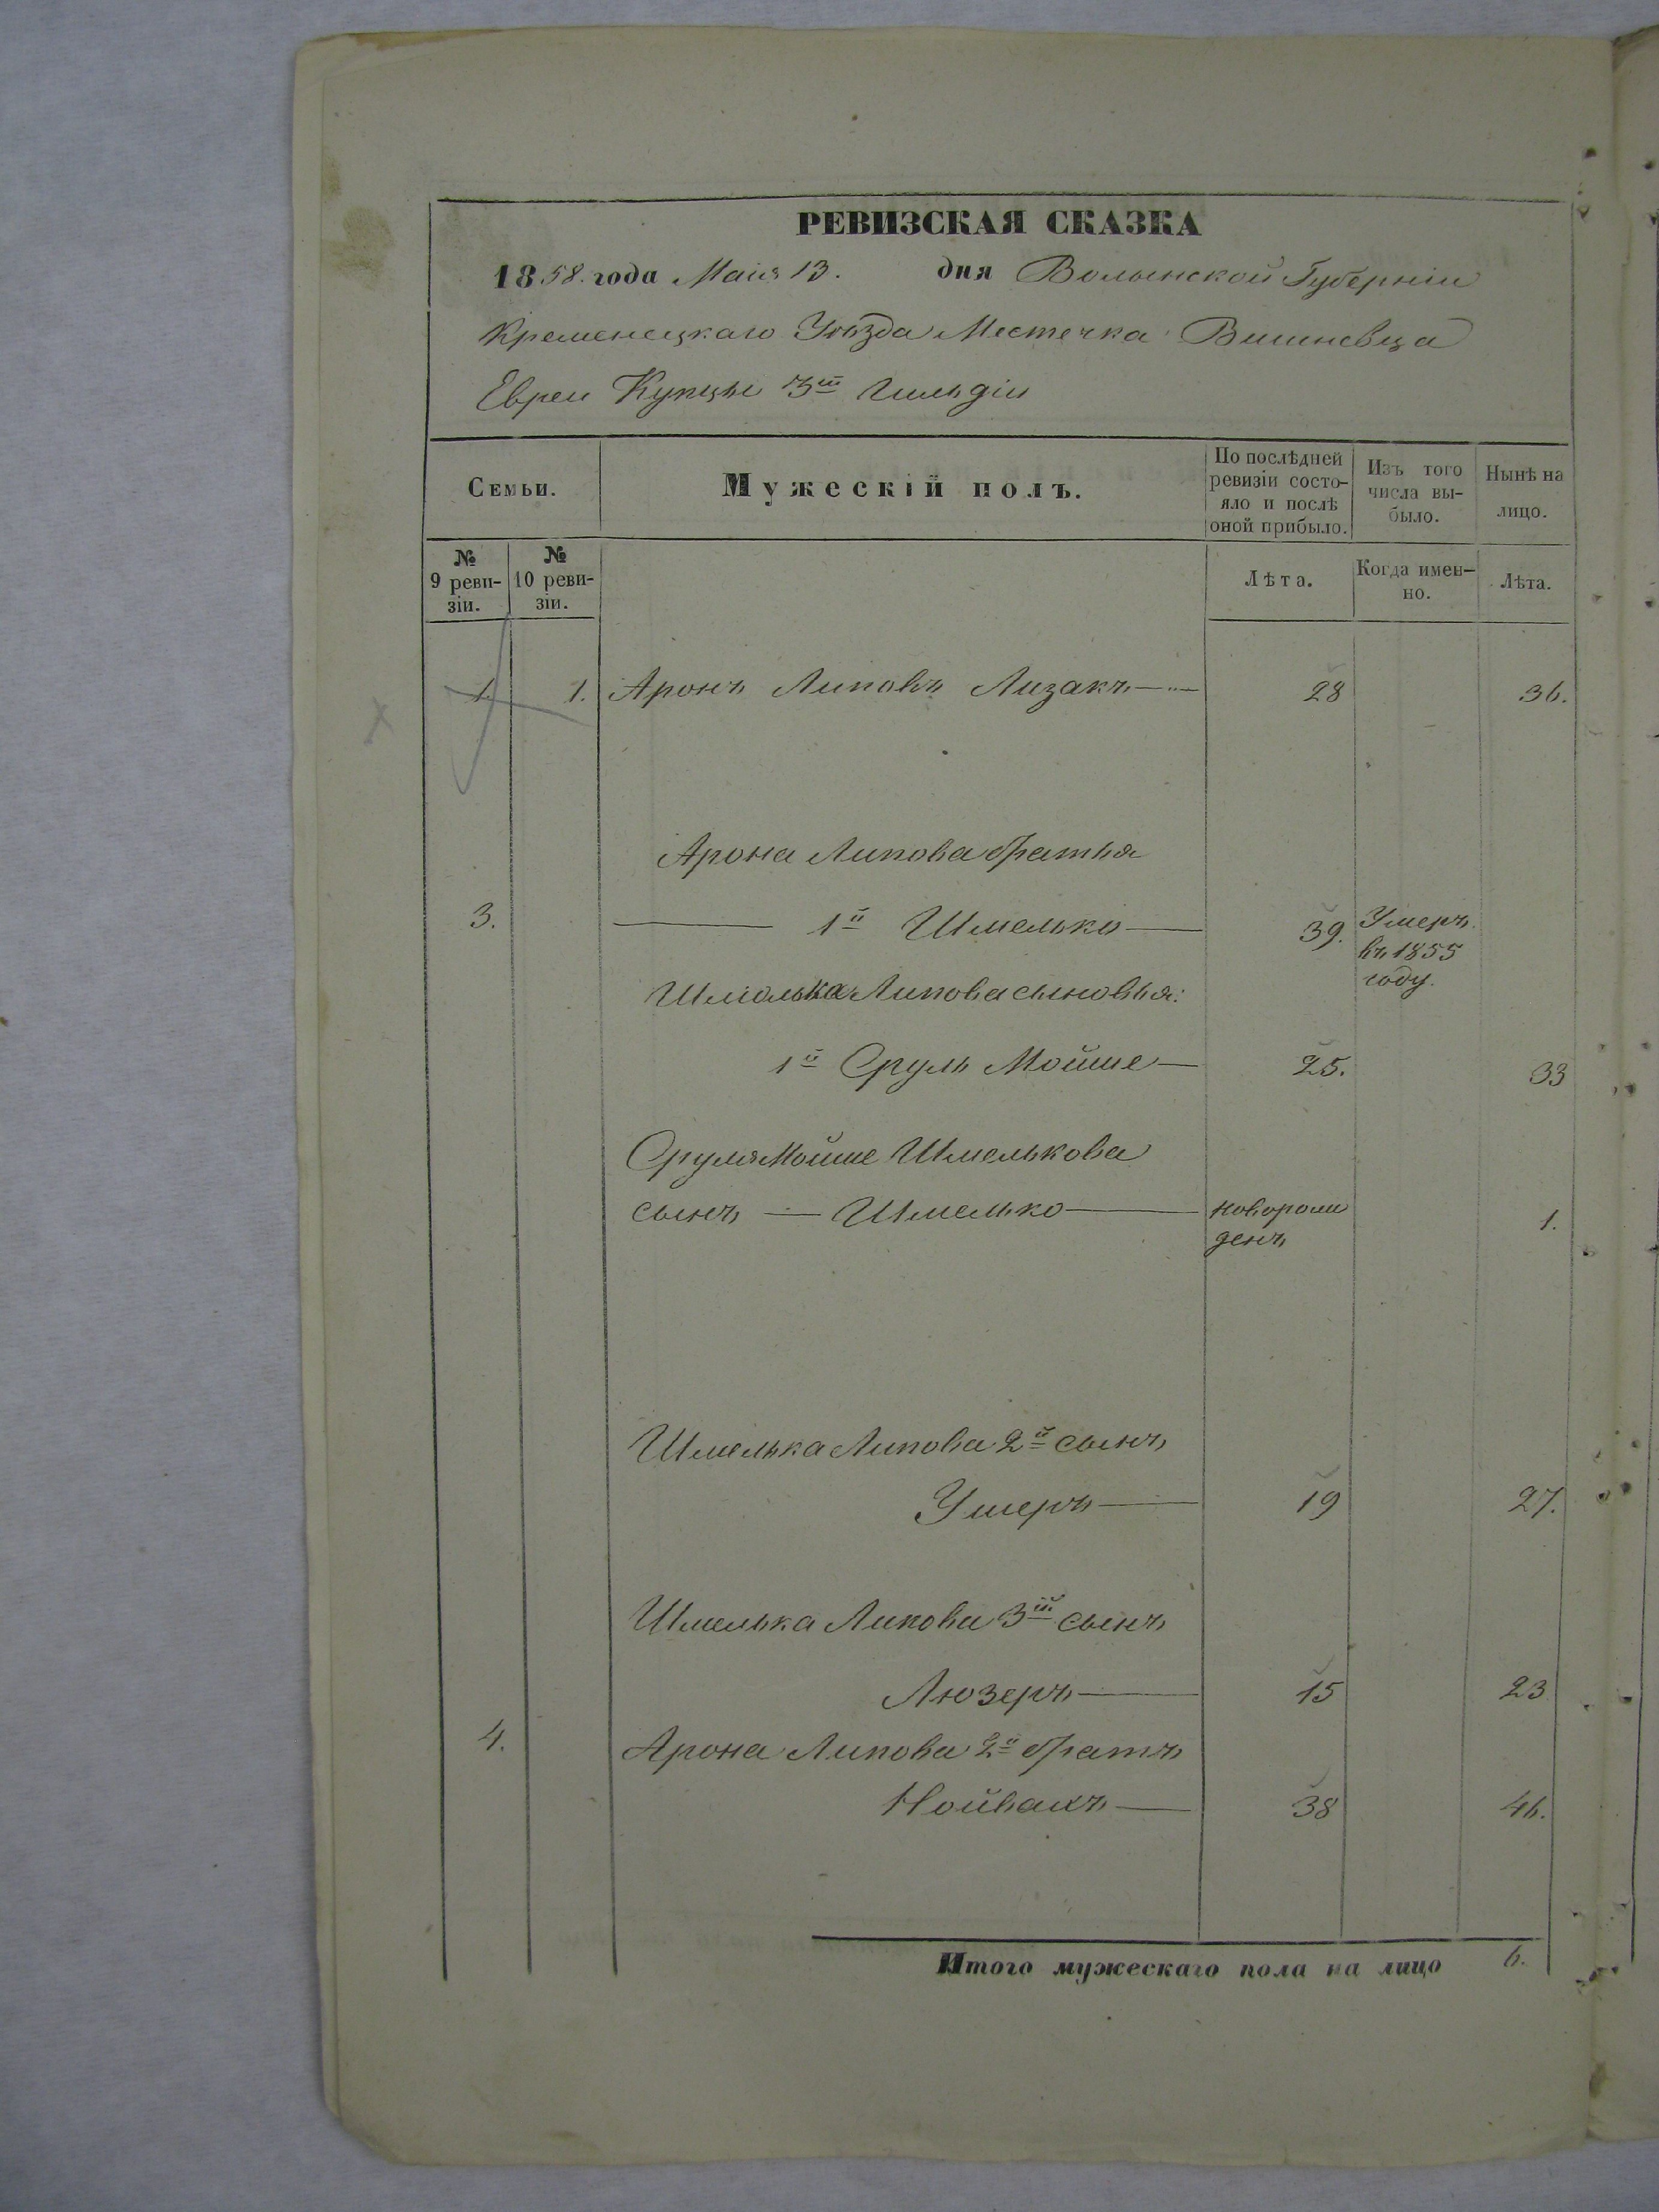 РЕВИЗСКАЯ СКАЗКА
1858. года Маія 13. дня Волынской Губерніи
Кременецкаго Уѣзда Местечка Вишневца
Евреи Купцы 3й Гильдіи
Семьи.
Мужескій полъ.
По послѣдней ревизіи состо-
яло и послѣ оной прибыло.
Изъ того числа вы-
было.
Нынѣ на лицо.
№ 9 реви-
зіи.
№ 10 реви-
зіи.
Лѣта.
Когда имен-
но.
Лѣта.
1. 1. Аронъ Липовъ Лизакъ 28 36.
Арона Липова братья
3. 1й Шмелько 39. Умеръ
въ 1855
году.
Шмелька Липова сыновья:
1й Сруль Мойше 25. 33
Сруля Мойше Шмелькова
сынъ — Шмелько новорож
денъ 1.
Шмелька Липова 2й сынъ
Умеръ 19 27.
Шмелька Липова 3й сынъ
Люзеръ 15 23
4. Арона Липова 2й братъ
Нойвахъ 38 46.
Итого мужескаго пола на лицо 6.